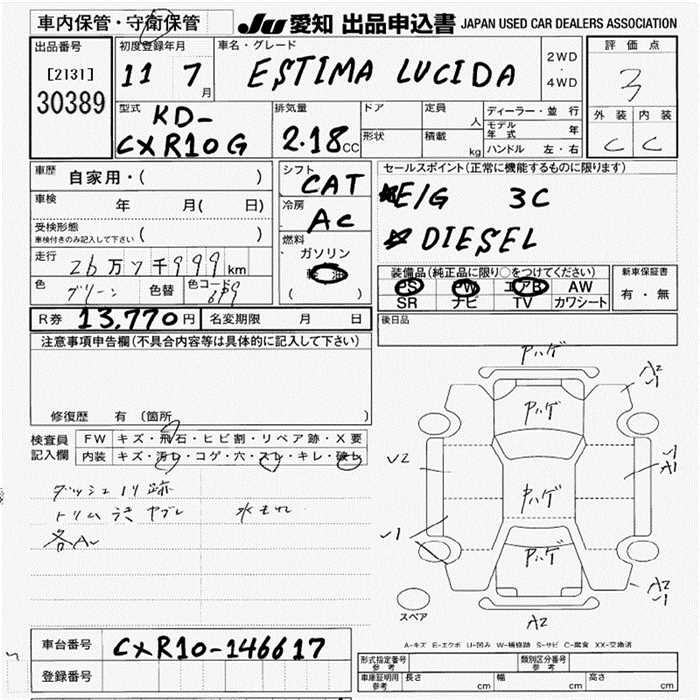 車内保管・守衛保管
JU 愛知 出品申込書 JAPAN USED CAR DEALERS ASSOCIATION
出品番号
[2131]
30389
初度登録年月
11 7月
車名・グレード
ESTIMA LUCIDA
2WD
・
4WD
評価点
3
外装 内装
C C
型式
KD-
CXR10G
排気量
2.18CC
ドア
形状
定員 人
積載 kg
ディーラー・並行
モデル年式 年
ハンドル 左・右
車歴 自家用・( )
車検 年 月( 日)
受検形態
車検付きのみ記入して下さい ( )
走行 26万7千999km
色 グリーン 色替 色コード 6P9
シフト
CAT
冷房
AC
燃料
ガソリン
( )
セールスポイント(正常に機能するものに限ります)
E/G 3C
DIESEL
装備品(純正品に限り○をつけてください)
PS PW エアB AW
SR ナビ TV カワシート
新車保証書
有・無
R券 13,770円 名変期限 月 日
後日品
注意事項申告欄(不具合内容等は具体的に記入して下さい)
修復歴 有 (箇所
検査員
記入欄
FW キズ・飛石・ヒビ割・リペア跡・X要
内装 キズ・汚レ・コゲ・穴・スレ・キレ・破レ
ダッシュノリ跡
トリムうき ヤブレ 水もれ
各A~
Pハゲ
A2
Pハゲ
A1
Pハゲ
Pハゲ
A2
スペア
A2
A-キズ E-エクボ U-凹み W-補修跡 S-サビ C-腐食 XX-交換済
車台番号 CXR10-146617
登録番号
形式指定番号
参考
類別区分番号
参考
車庫証明用
参考
長さ cm 幅 cm 高さ cm